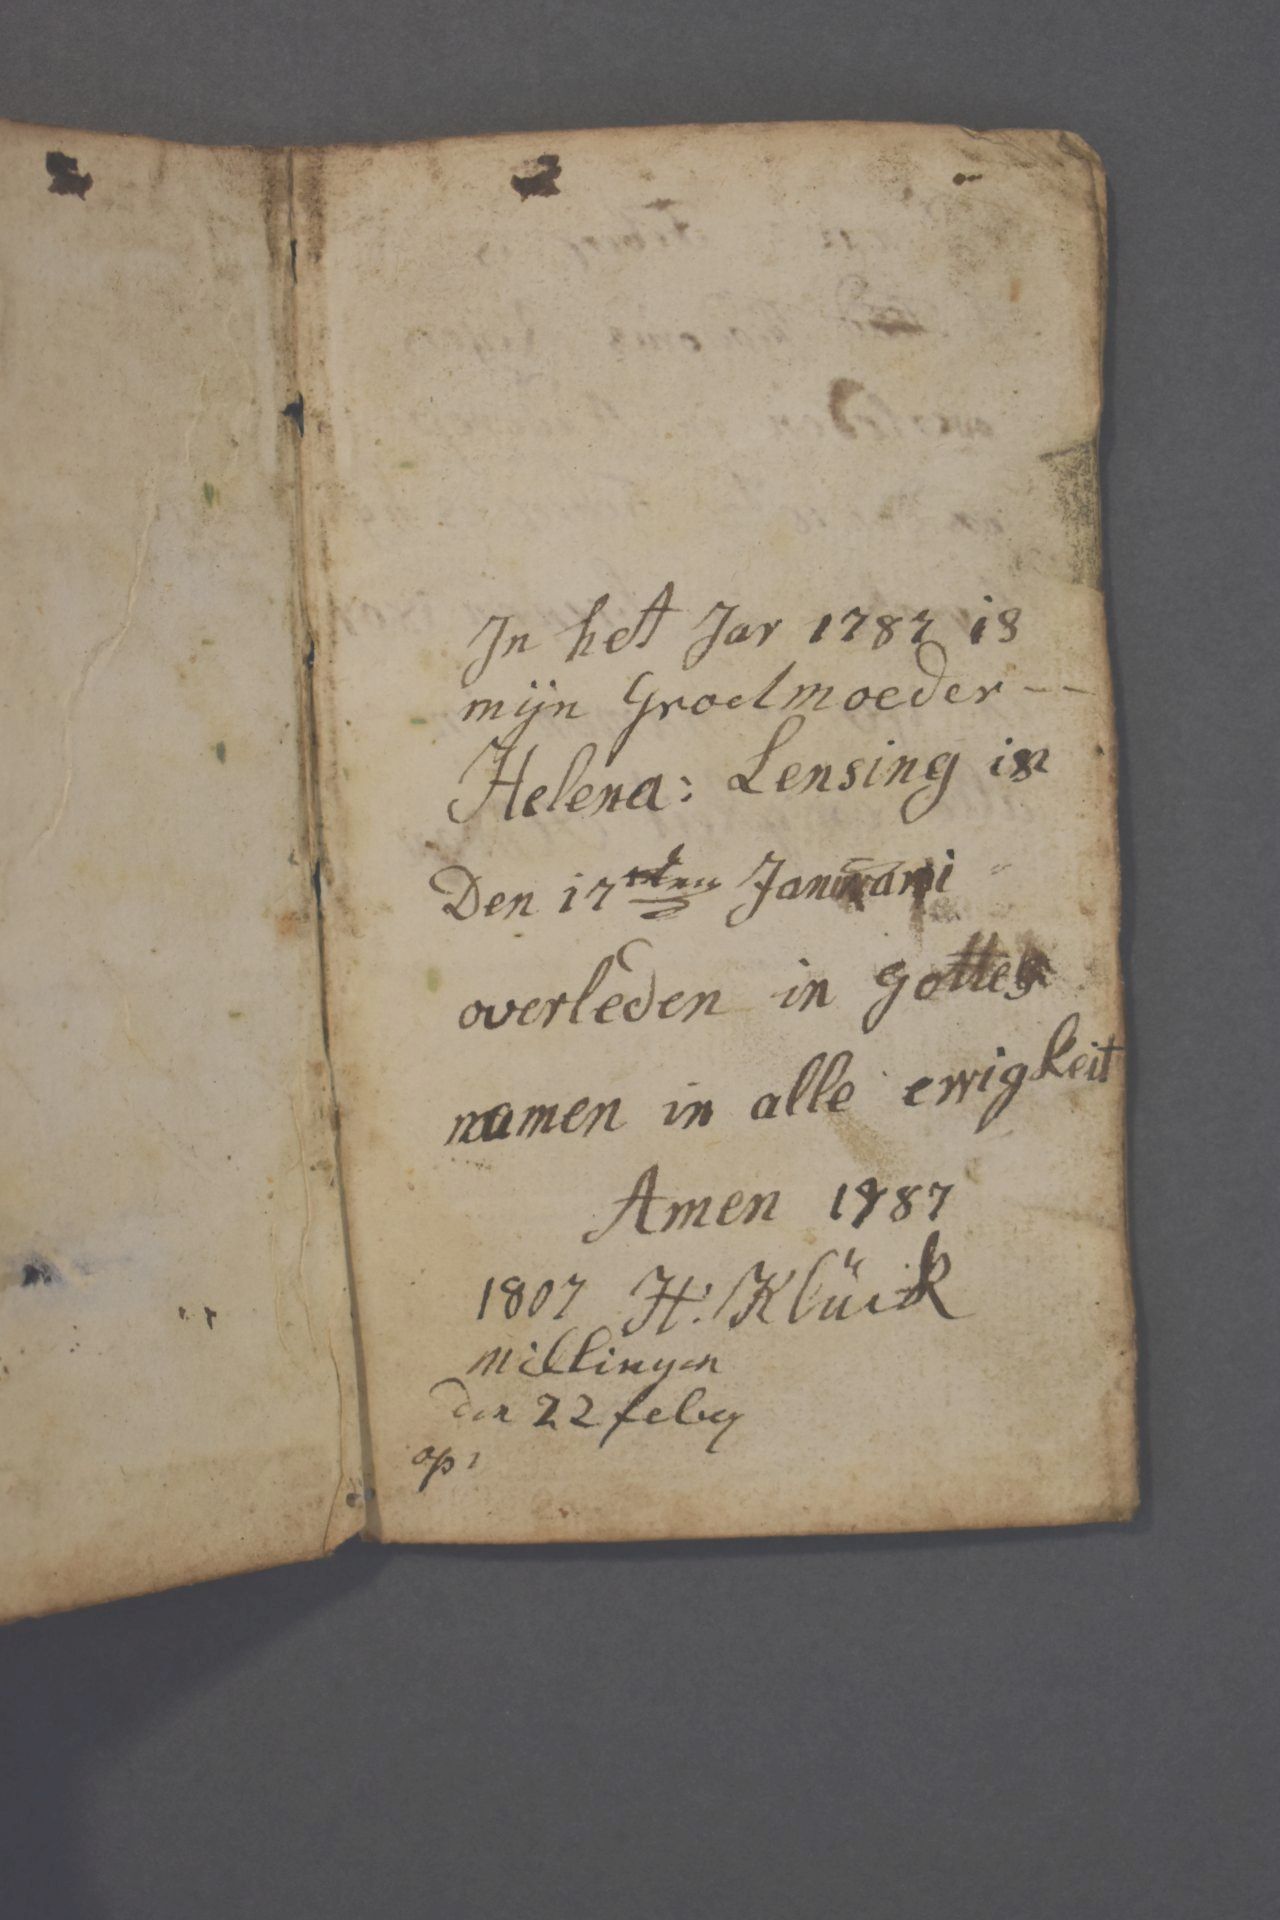 In het Jar 1787 is
mijn Grootmoeder --
Helena: Lensing in
Den 17den Januari
overleden in gottes
namen in alle ewigkeit
Amen 1787
1807 H: Klück
Millingen
den 22 febry
op